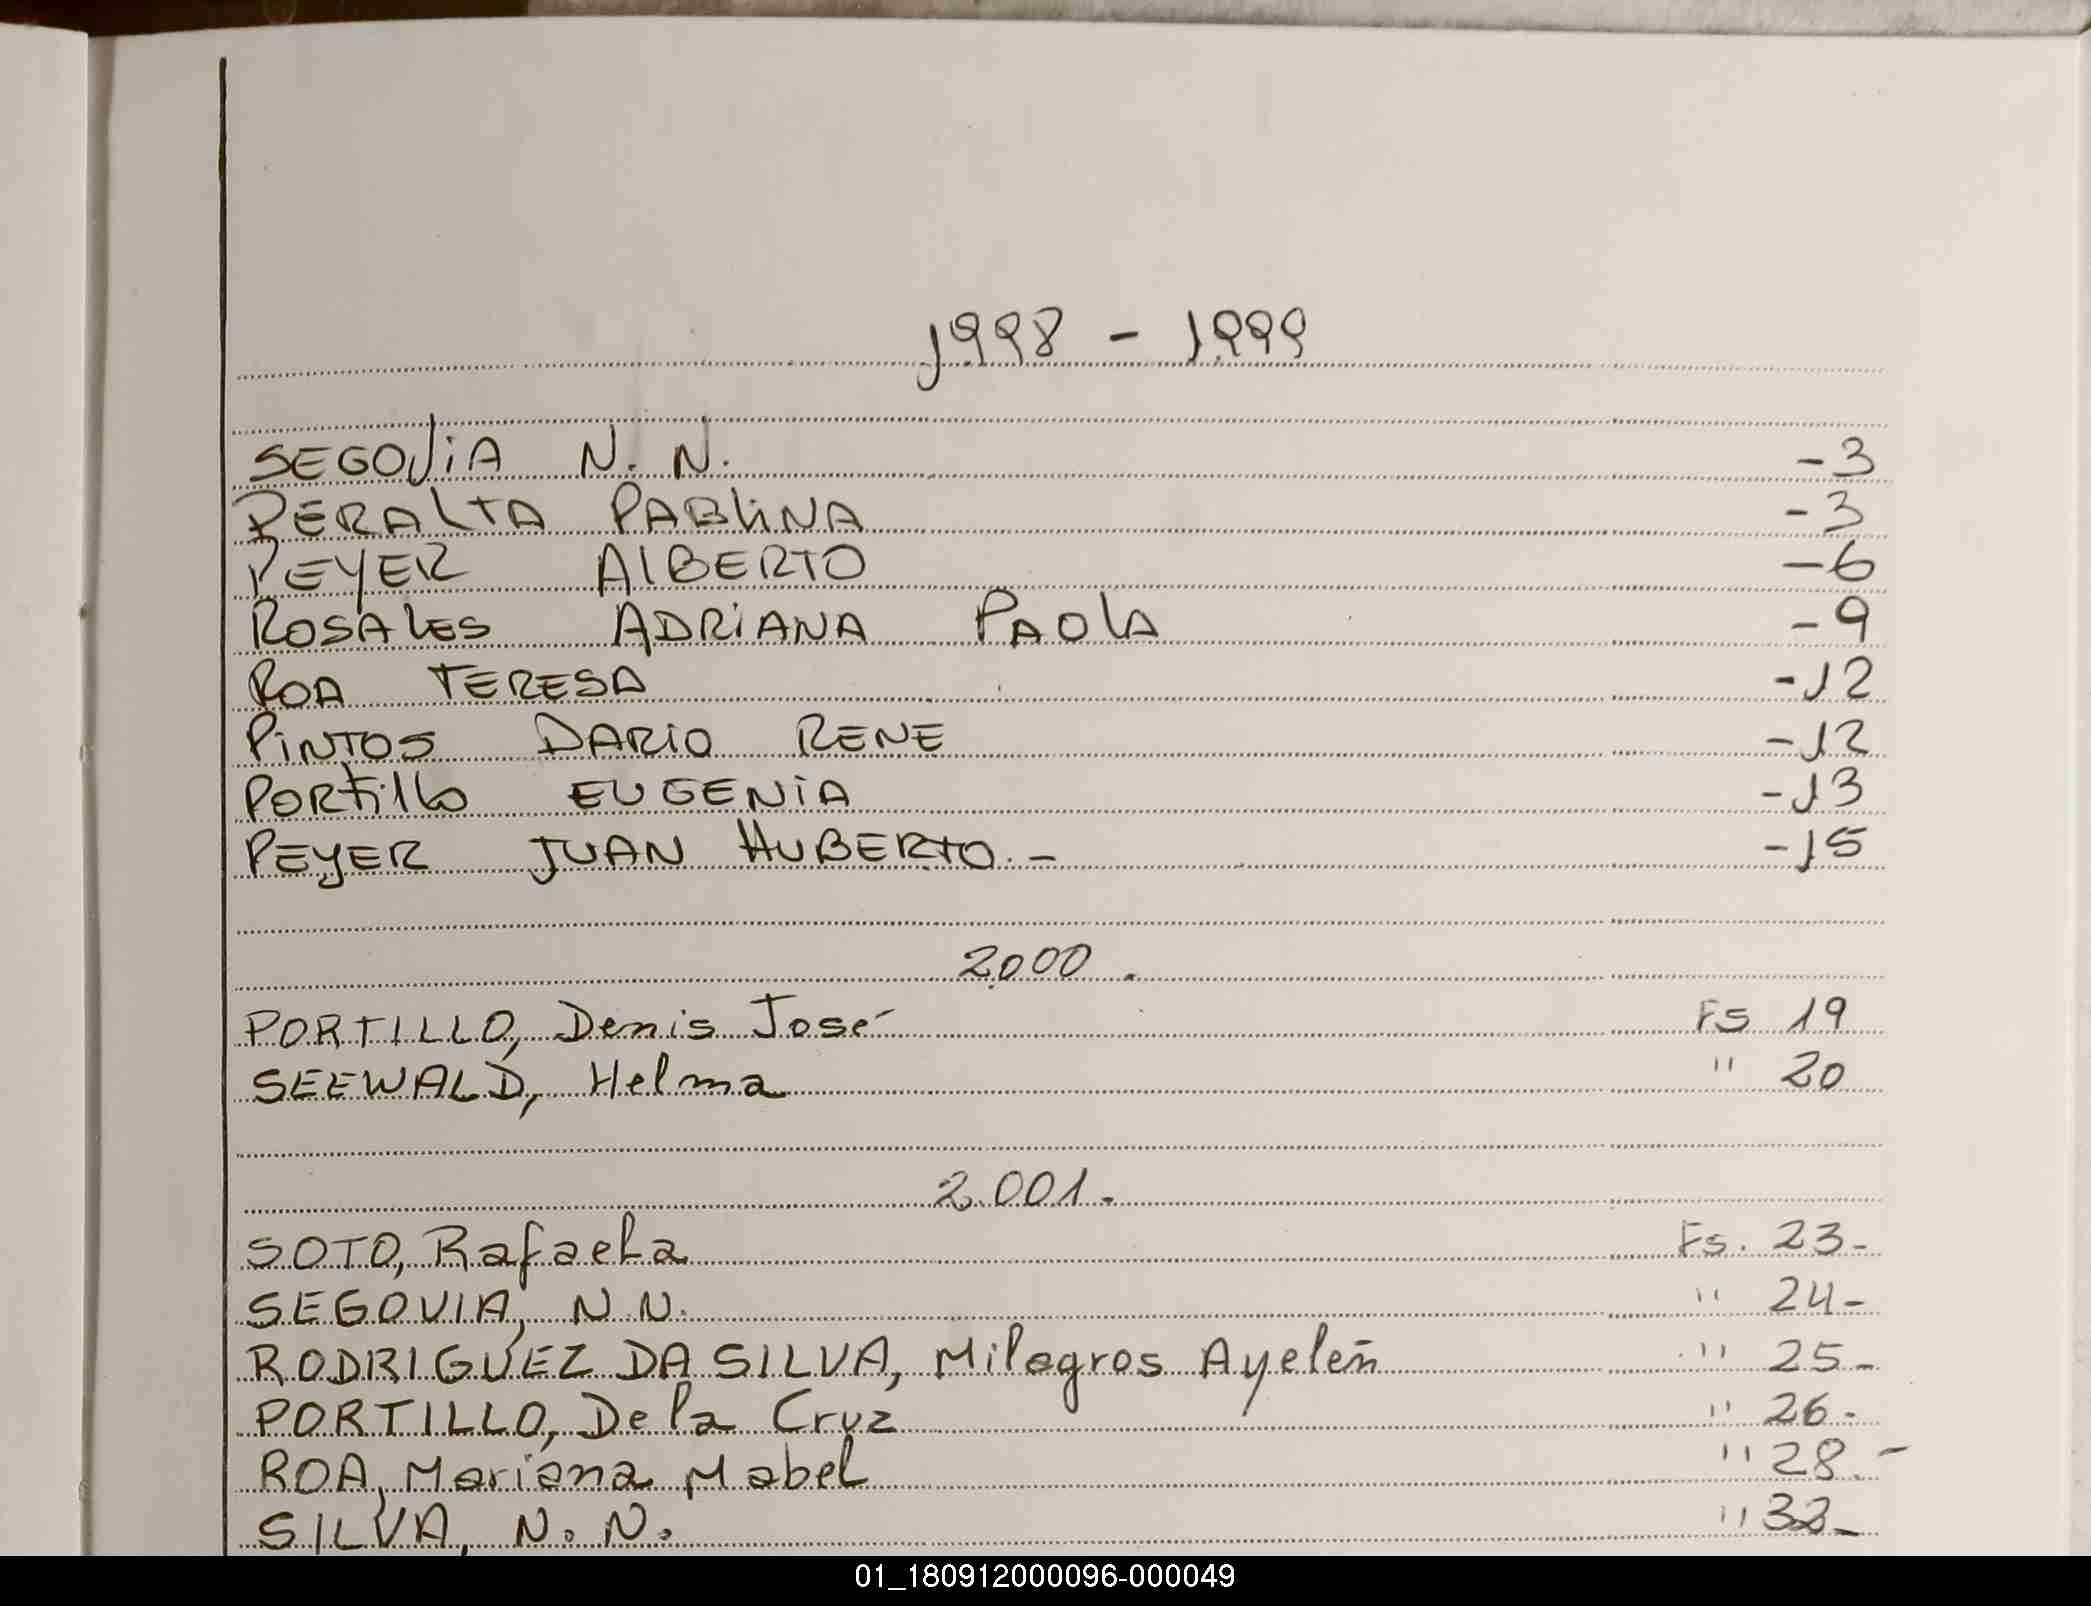 1998 - 1999
SEGOViA N. N. -3
PERALTA PABLiNA -3
PEYER ALBERTO -6
ROSALES ADRiANA PAOLA -9
ROA TERESA -12
PiNTOS DARiO RENE -12
PORtillo EUGENiA -13
PEYER JUAN HUBERTO.- -15
2.000.
PORTILLO, Denis José Fs 19
SEEWALD, Helma " 20
2.001.
SOTO, Rafaela Fs. 23-
SEGOVIA, N.N. " 24-
RODRIGUEZ DA SILVA, Milagros Ayelén " 25-
PORTILLO, De la Cruz " 26.
ROA, Mariana Mabel " 28.-
SILVA, N.N. "
01_180912000096-000049